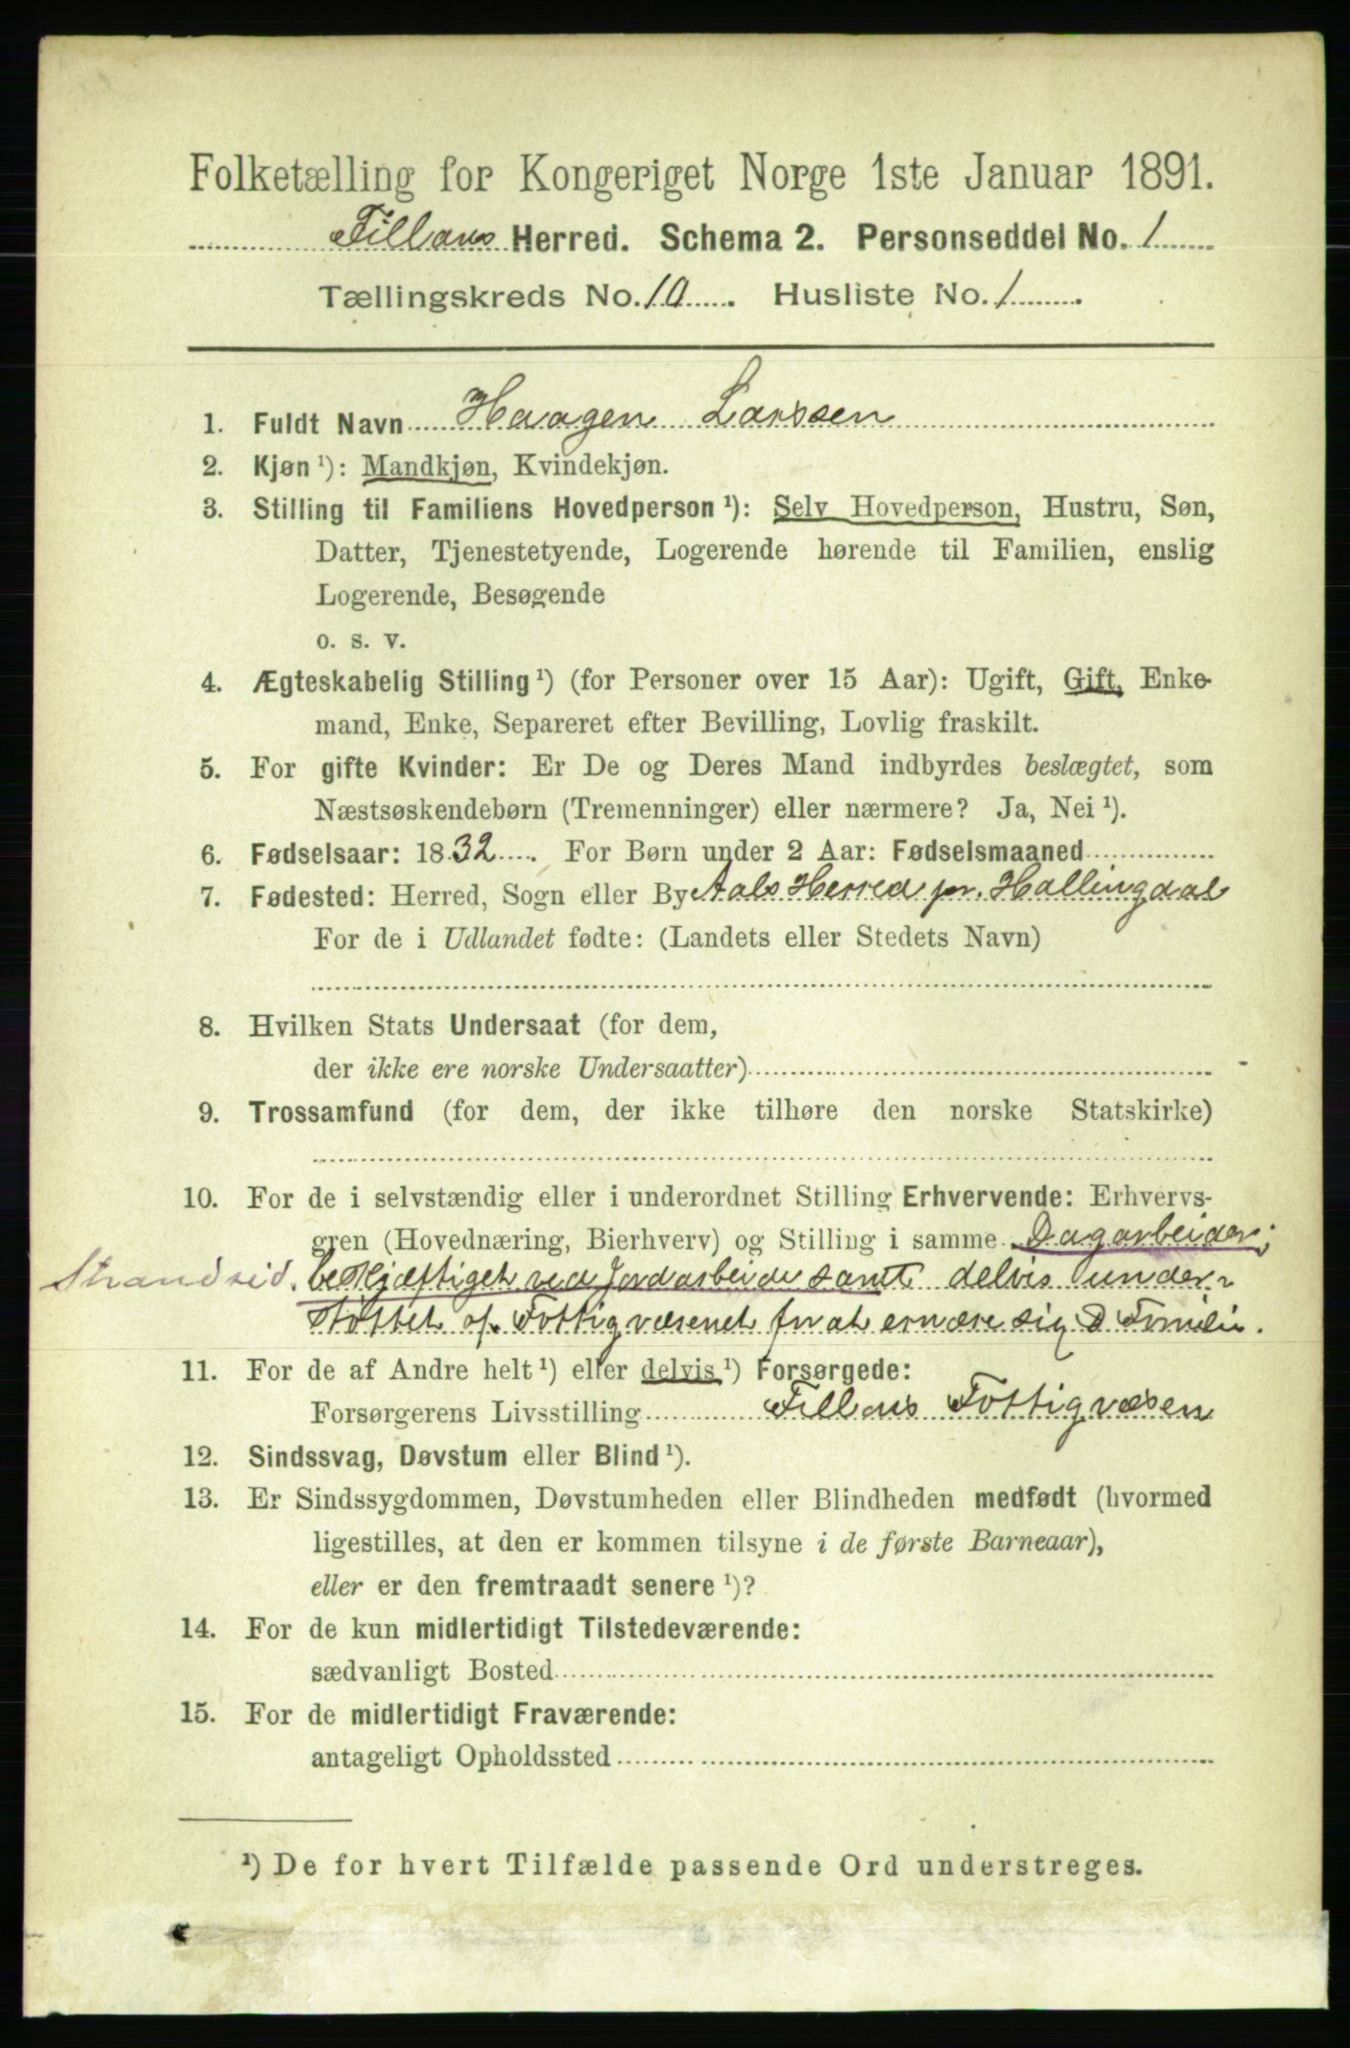 Folketælling for Kongeriget Norge 1ste Januar 1891.
Fillans Herred. Schema 2. Personseddel No. 1
Tællingskreds No. 10. Husliste No. 1.
1. Fuldt Navn Haagen Larssen
2. Kjøn ¹): Mandkjøn, Kvindekjøn.
3. Stilling til Familiens Hovedperson ¹): Selv Hovedperson, Hustru, Søn,
Datter, Tjenestetyende, Logerende hørende til Familien, enslig
Logerende, Besøgende
o. s. v.
4. Ægteskabelig Stilling ¹) (for Personer over 15 Aar): Ugift, Gift, Enke-
mand, Enke, Separeret efter Bevilling, Lovlig fraskilt.
5. For gifte Kvinder: Er De og Deres Mand indbyrdes beslægtet, som
Næstsøskendebørn (Tremenninger) eller nærmere? Ja, Nei ¹).
6. Fødselsaar: 1832. For Børn under 2 Aar: Fødselsmaaned
7. Fødested: Herred, Sogn eller By Aals Herred pr. Hallingdal
For de i Udlandet fødte: (Landets eller Stedets Navn)
8. Hvilken Stats Undersaat (for dem,
der ikke ere norske Undersaatter)
9. Trossamfund (for dem, der ikke tilhøre den norske Statskirke)
10. For de i selvstændig eller i underordnet Stilling Erhvervende: Erhvervs-
gren (Hovednæring, Bierhverv) og Stilling i samme Dagarbeider;
Strandsid. beskjæftiget ved Jordarbeide samt delvis under-
støttet af Fattigvæsenet for at ernære sig & Familie.
11. For de af Andre helt ¹) eller delvis ¹) Forsørgede:
Forsørgerens Livsstilling Fillans Fattigvæsen
12. Sindssvag, Døvstum eller Blind ¹).
13. Er Sindssygdommen, Døvstumheden eller Blindheden medfødt (hvormed
ligestilles, at den er kommen tilsyne i de første Barneaar),
eller er den fremtraadt senere ¹)?
14. For de kun midlertidigt Tilstedeværende:
sædvanligt Bosted
15. For de midlertidigt Fraværende:
antageligt Opholdssted
¹) De for hvert Tilfælde passende Ord understreges.